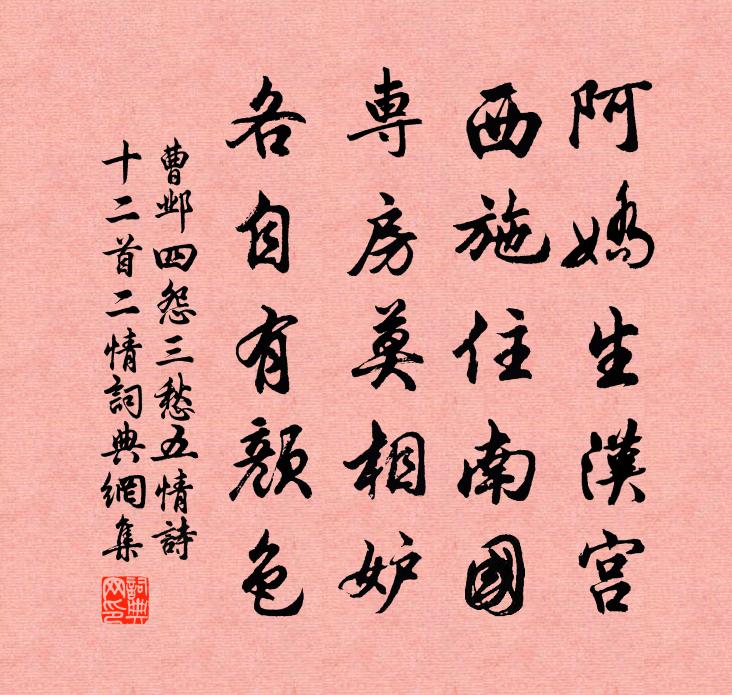 阿嬌生漢宮
西施住南國
専房莫相妒
各自有顏色
曹邺四怨三愁五情詩
十二首二情詞典網集
詞典網印